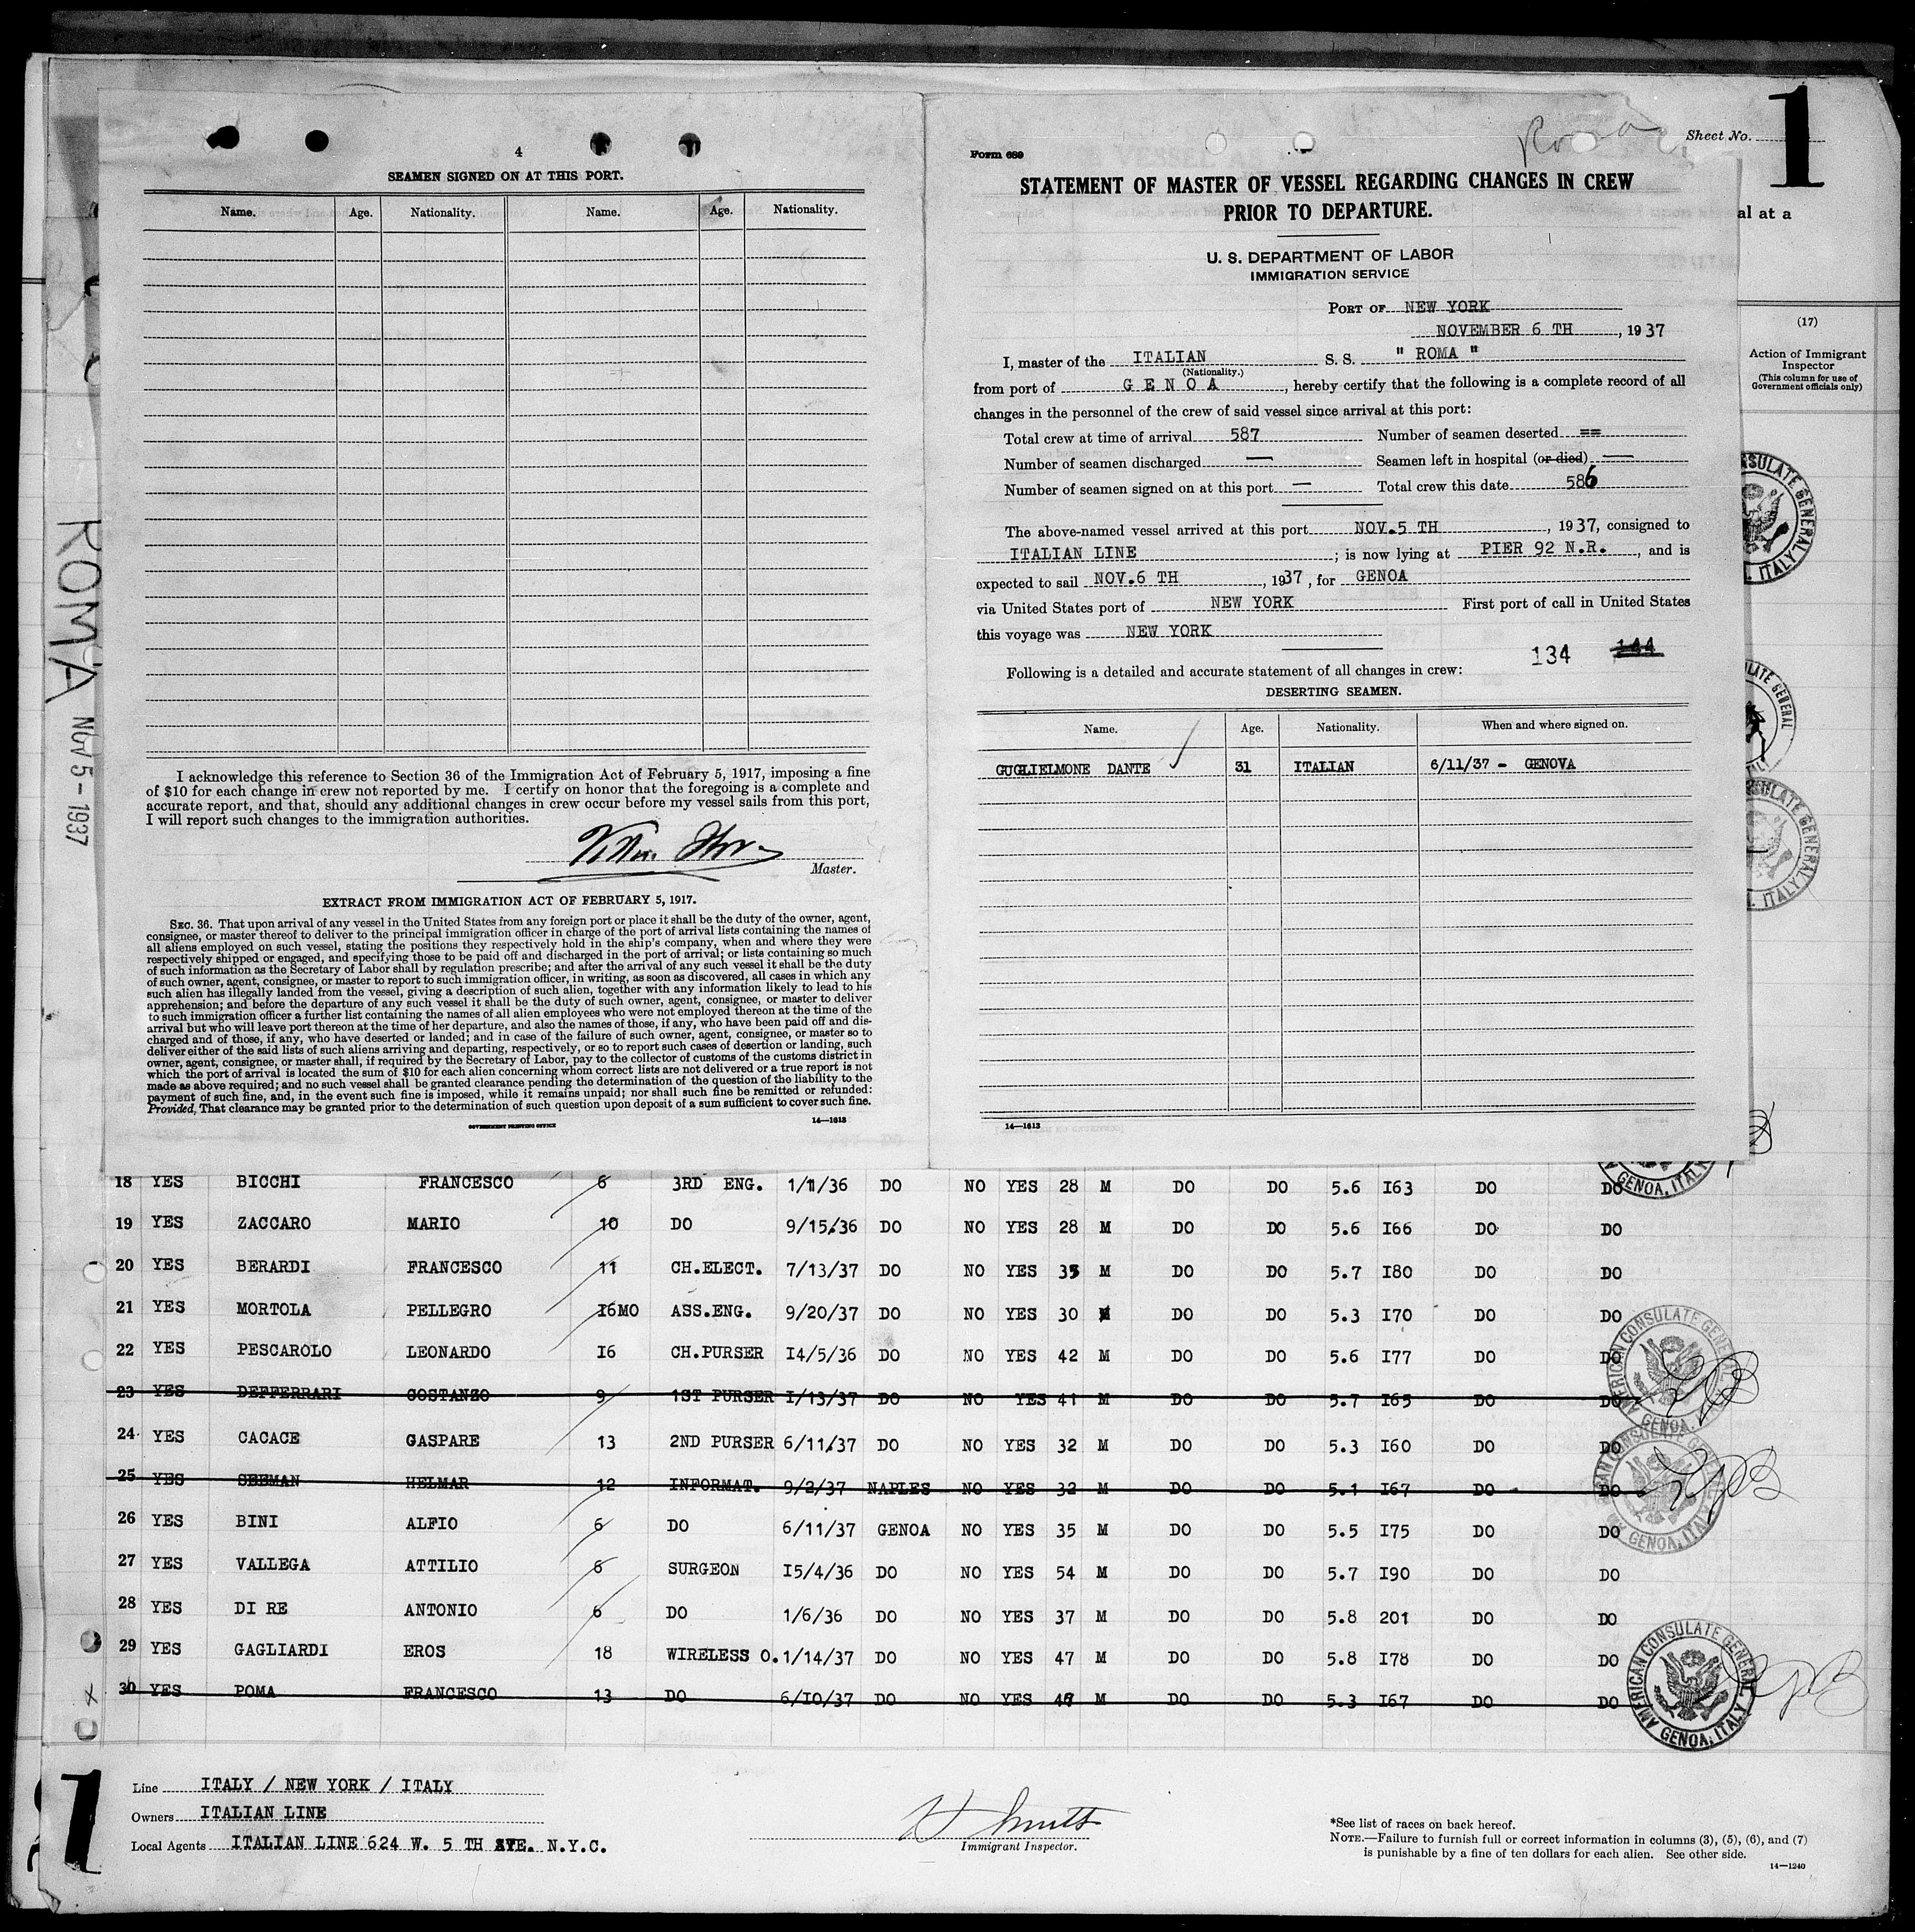 4
SEAMEN SIGNED ON AT THIS PORT.
Name. Age. Nationality. Name. Age. Nationality.
I acknowledge this reference to Section 36 of the Immigration Act of February 5, 1917, imposing a fine
of $10 for each change in crew not reported by me. I certify on honor that the foregoing is a complete and
accurate report, and that, should any additional changes in crew occur before my vessel sails from this port,
I will report such changes to the immigration authorities.
Master.
EXTRACT FROM IMMIGRATION ACT OF FEBRUARY 5, 1917.
SEC. 36. That upon arrival of any vessel in the United States from any foreign port or place it shall be the duty of the owner, agent,
consignee, or master thereof to deliver to the principal immigration officer in charge of the port of arrival lists containing the names of
all aliens employed on such vessel, stating the positions they respectively hold in the ship's company, when and where they were
respectively shipped or engaged, and specifying those to be paid off and discharged in the port of arrival; or lists containing so much
of such information as the Secretary of Labor shall by regulation prescribe; and after the arrival of any such vessel it shall be the duty
of such owner, agent, consignee, or master to report to such immigration officer, in writing, as soon as discovered, all cases in which any
such alien has illegally landed from the vessel, giving a description of such alien, together with any information likely to lead to his
apprehension; and before the departure of any such vessel it shall be the duty of such owner, agent, consignee, or master to deliver
to such immigration officer a further list containing the names of all alien employees who were not employed thereon at the time of the
arrival but who will leave port thereon at the time of her departure, and also the names of those, if any, who have been paid off and dis-
charged and of those, if any, who have deserted or landed; and in case of the failure of such owner, agent, consignee, or master so to
deliver either of the said lists of such aliens arriving and departing, respectively, or so to report such cases of desertion or landing, such
owner, agent, consignee, or master shall, if required by the Secretary of Labor, pay to the collector of customs of the customs district in
which the port of arrival is located the sum of $10 for each alien concerning whom correct lists are not delivered or a true report is not
made as above required; and no such vessel shall be granted clearance pending the determination of the question of the liability to the
payment of such fine, and, in the event such fine is imposed, while it remains unpaid; nor shall such fine be remitted or refunded:
Provided, That clearance may be granted prior to the determination of such question upon deposit of a sum sufficient to cover such fine.
GOVERNMENT PRINTING OFFICE 14—1613
ROMA NOV 5 - 1937
Roma
Sheet No. 1
al at a
(17)
Action of Immigrant
Inspector
(This column for use of
Government officials only)
Form 689
STATEMENT OF MASTER OF VESSEL REGARDING CHANGES IN CREW
PRIOR TO DEPARTURE.
U. S. DEPARTMENT OF LABOR
IMMIGRATION SERVICE
PORT OF NEW YORK
NOVEMBER 6 TH, 1937
I, master of the ITALIAN S. S. " ROMA "
(Nationality.)
from port of GENOA, hereby certify that the following is a complete record of all
changes in the personnel of the crew of said vessel since arrival at this port:
Total crew at time of arrival 587 Number of seamen deserted ==
Number of seamen discharged — Seamen left in hospital (or died) —
Number of seamen signed on at this port — Total crew this date 586
The above-named vessel arrived at this port NOV.5 TH, 1937, consigned to
ITALIAN LINE; is now lying at PIER 92 N.R., and is
expected to sail NOV.6 TH, 1937, for GENOA
via United States port of NEW YORK First port of call in United States
this voyage was NEW YORK
134 144
Following is a detailed and accurate statement of all changes in crew:
DESERTING SEAMEN.
Name. Age. Nationality. When and where signed on.
GUGLIELMONE DANTE 31 ITALIAN 6/11/37 - GENOVA
14—1613
18 YES BICCHI FRANCESCO 6 3RD ENG. 1/11/36 DO NO YES 28 M DO DO 5.6 I63 DO DO
19 YES ZACCARO MARIO 10 DO 9/15/36 DO NO YES 28 M DO DO 5.6 I66 DO DO
20 YES BERARDI FRANCESCO 11 CH.ELECT. 7/13/37 DO NO YES 35 M DO DO 5.7 I80 DO DO
21 YES MORTOLA PELLEGRO I6MO ASS.ENG. 9/20/37 DO NO YES 30 M DO DO 5.3 I70 DO DO
22 YES PESCAROLO LEONARDO I6 CH.PURSER I4/5/36 DO NO YES 42 M DO DO 5.6 I77 DO DO
23 YES DEFFERRARI COSTANZO 9 1ST PURSER I/13/37 DO NO YES 41 M DO DO 5.7 I65 DO DO
24 YES CACACE GASPARE 13 2ND PURSER 6/11/37 DO NO YES 32 M DO DO 5.3 I60 DO DO
25 YES SEEMAN HELMAR 12 INFORMAT. 9/2/37 NAPLES NO YES 32 M DO DO 5.1 I67 DO DO
26 YES BINI ALFIO 6 DO 6/11/37 GENOA NO YES 35 M DO DO 5.5 I75 DO DO
27 YES VALLEGA ATTILIO 6 SURGEON I5/4/36 DO NO YES 54 M DO DO 5.7 I90 DO DO
28 YES DI RE ANTONIO 6 DO 1/6/36 DO NO YES 37 M DO DO 5.8 201 DO DO
29 YES GAGLIARDI EROS 18 WIRELESS O. 1/14/37 DO NO YES 47 M DO DO 5.8 I78 DO DO
30 YES POMA FRANCESCO 13 DO 6/I0/37 DO NO YES 47 M DO DO 5.3 I67 DO DO
AMERICAN CONSULATE GENERAL
GENOA, ITALY
1
Line ITALY / NEW YORK / ITALY
Owners ITALIAN LINE
Local Agents ITALIAN LINE 624 W. 5 TH AVE. N.Y.C.
Immigrant Inspector.
*See list of races on back hereof.
NOTE.—Failure to furnish full or correct information in columns (3), (5), (6), and (7)
is punishable by a fine of ten dollars for each alien. See other side.
14—1240